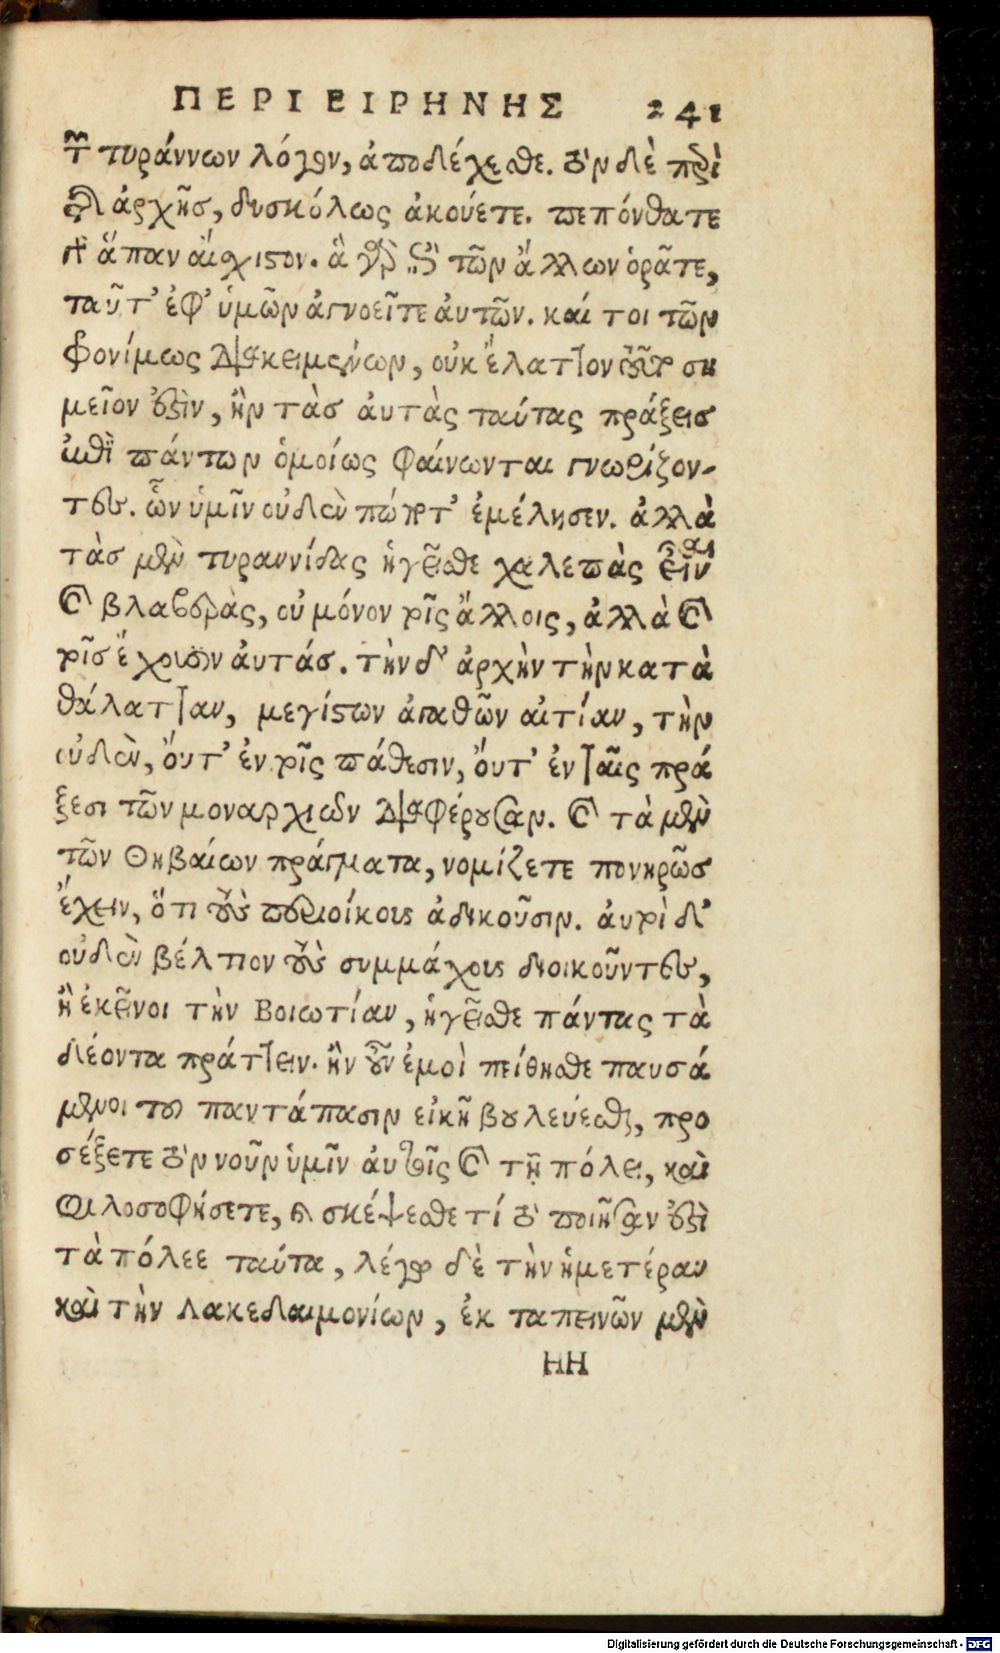 ΠΕΡΙ ΕΙΡΗΝΗΣ 241
τῶν τυράννων λόγον, ἀποδέχεσθε. τὸν δὲ περὶ
τῆς ἀρχῆς, δυσκόλως ἀκούετε. πεπόνθατε
δ' ἅπαν αἴσχιστον. ἃ γὰρ ἐπὶ τῶν ἄλλων ὁρᾶτε,
ταῦτ' ἐφ' ὑμῶν ἀγνοεῖτε αὐτῶν. καί τοι τῶν
φονίμως διακειμένων, οὐκ ἔλαττον τοῦτο ση
μεῖον ἐστὶν, ἢν τὰς αὐτὰς ταύτας πράξεις
ἐπὶ πάντων ὁμοίως φαίνωνται γνωρίζον-
τες. ὧν ὑμῖν οὐδὲν πώποτ' ἐμέλησεν. ἀλλὰ
τὰς μὲν τυραννίδας ἡγεῖσθε χαλεπὰς εἶναι
καὶ βλαβερὰς, οὐ μόνον τοῖς ἄλλοις, ἀλλὰ καὶ
τοῖς ἔχουσιν αὐτάς. τὴν δ' ἀρχὴν τὴν κατὰ
θάλατταν, μεγίστων ἀγαθῶν αἰτίαν, τὴν
οὐδὲν, οὔτ' ἐν τοῖς πάθεσιν, οὔτ' ἐν ταῖς πρά
ξεσι τῶν μοναρχιῶν διαφέρουσαν. καὶ τὰ μὲν
τῶν Θηβαίων πράγματα, νομίζετε πονηρῶς
ἔχειν, ὅτι τοὺς περιοίκους ἀδικοῦσιν. αὐτοὶ δ'
οὐδὲν βέλτιον τοὺς συμμάχους διοικοῦντες,
ἢ ἐκεῖνοι τὴν Βοιωτίαν, ἡγεῖσθε πάντας τὰ
δέοντα πράττειν. ἢν οὖν ἐμοὶ πείθησθε παυσά
μενοι τοῦ παντάπασιν εἰκῆ βουλεύεσθαι, προ
σέξετε τὸν νοῦν ὑμῖν αὐτοῖς καὶ τῇ πόλει, καὶ
φιλοσοφήσετε, καὶ σκέψεσθε τί τὸ ποιῆσαν ἐστὶ
τὰ πόλεε ταύτα, λέγω δὲ τὴν ἡμετέραν
καὶ τὴν Λακεδαιμονίων, ἐκ ταπεινῶν μὲν
HH
Digitalisierung gefördert durch die Deutsche Forschungsgemeinschaft - DFG